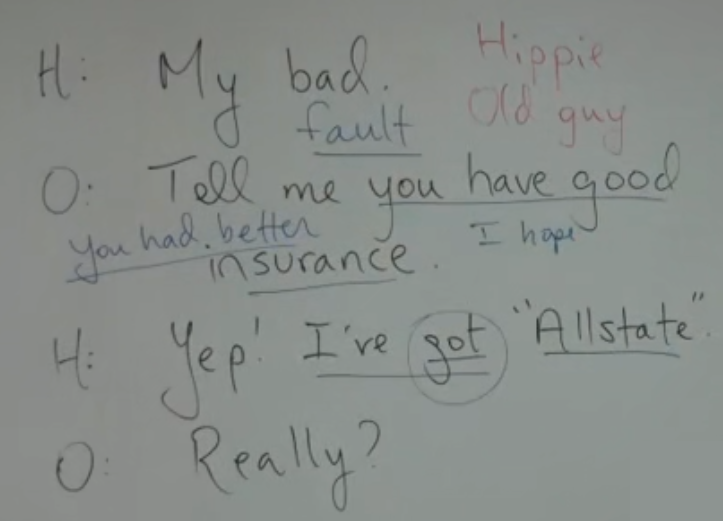 H: My bad. Hippie
fault Old guy
O: Tell me you have good
you had better I hope
insurance.
H: Yep! I've got "Allstate".
O: Really?